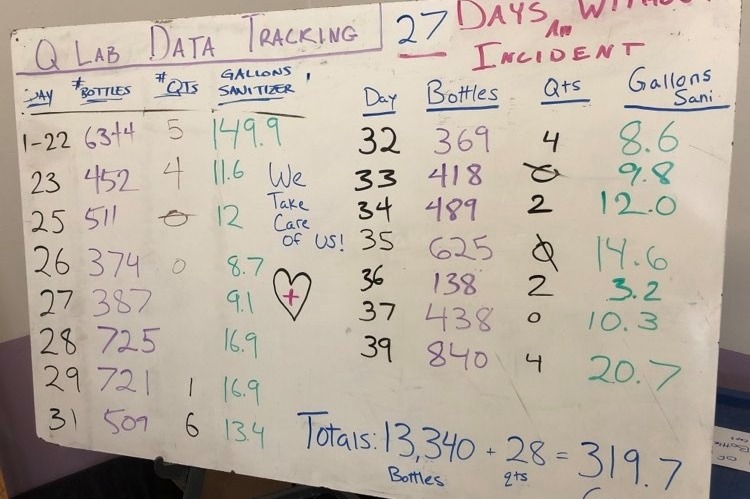 Q LAB DATA TRACKING
27 DAYS WITHOUT
AN
INCIDENT
DAY # BOTTLES # QTS GALLONS SANITIZER
1-22 6344 5 149.9
23 452 4 11.6
25 511 0 12
26 374 0 8.7
27 387 9.1
28 725 16.9
29 721 1 16.9
31 509 6 13.4
We
Take
Care
of US!
+
Day Bottles Qts Gallons Sani
32 369 4 8.6
33 418 0 9.8
34 489 2 12.0
35 625 0 14.6
36 138 2 3.2
37 438 0 10.3
39 840 4 20.7
Totals: 13,340 + 28 = 319.7
Bottles qts